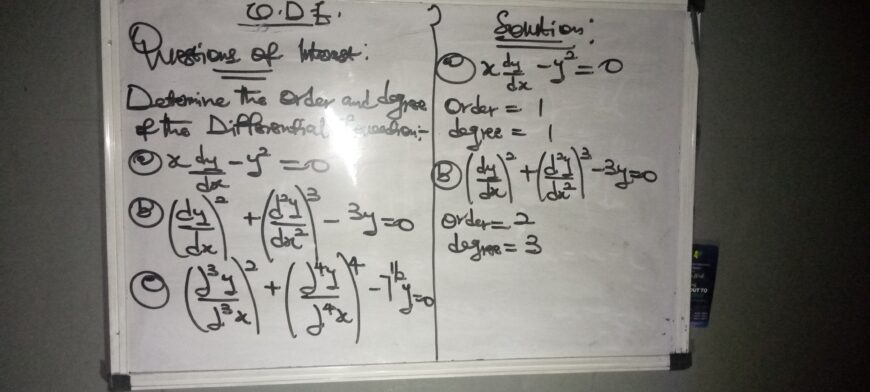 O.D.E.
Questions of Interest:
Determine the order and degree
of the Differential Equation:-
x dy/dx - y² = 0
(B) (dy/dx)² + (d²y/dx²)³ - 3y = 0
(C) (d³y/d³x)² + (d⁴y/d⁴x)⁴ - 7^{1/2}y = 0
Solution:
x dy/dx - y² = 0
Order = 1
degree = 1
(B) (dy/dx)² + (d²y/dx²)³ - 3y = 0
order = 2
degree = 3